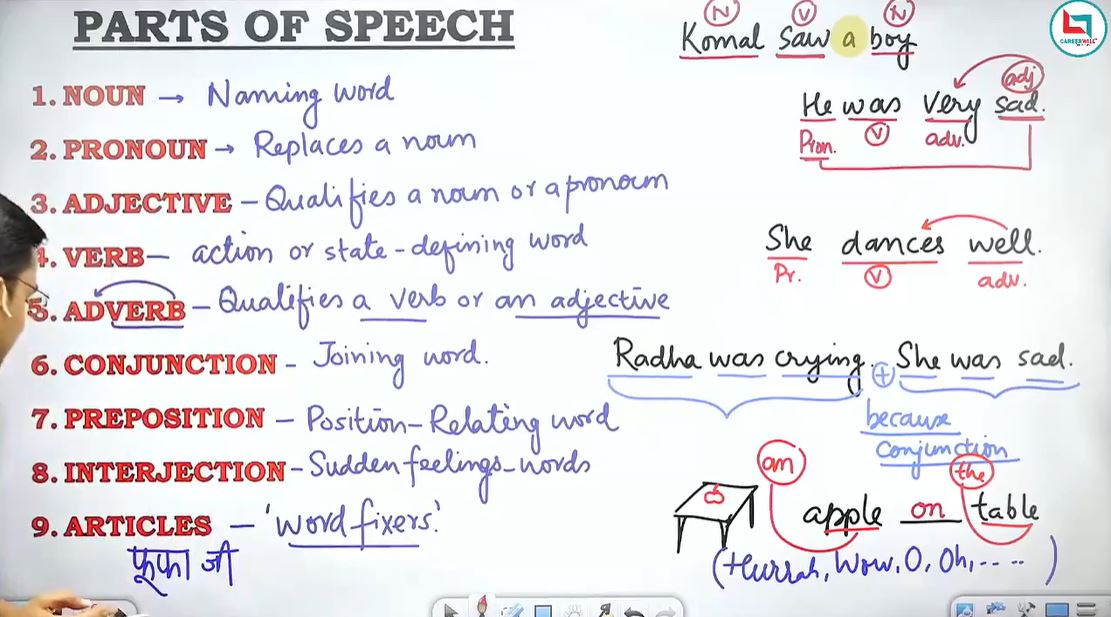 PARTS OF SPEECH
1. NOUN → Naming word
2. PRONOUN → Replaces a noun
3. ADJECTIVE - Qualifies a noun or a pronoun
4. VERB - action or state-defining word
5. ADVERB - Qualifies a verb or an adjective
6. CONJUNCTION - Joining word.
7. PREPOSITION - Position-Relating word
8. INTERJECTION - Sudden feelings-words
9. ARTICLES - 'word fixers'.
फूफा जी
N V N
Komal saw a boy
CAREERWILL
adj
He was very sad.
Pron. V adv.
She dances well.
Pr. V adv.
Radha was crying. + She was sad.
because
conjunction
an the
apple on table
(Hurrah, Wow, O, Oh, .....)